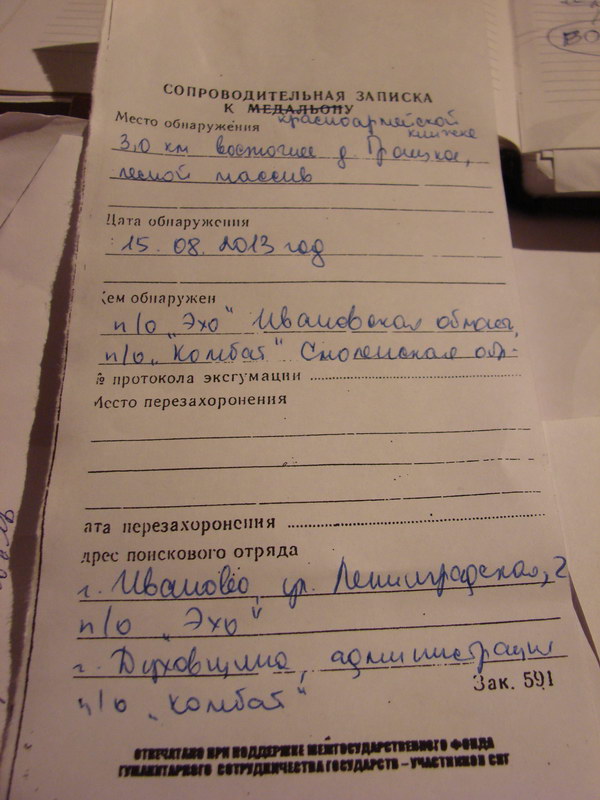 СОПРОВОДИТЕЛЬНАЯ ЗАПИСКА
К МЕДАЛЬОНУ
красноармейской
книжке
Место обнаружения
3,0 км восточнее д. Троицкое,
лесной массив
Дата обнаружения
15. 08. 2013 год
Кем обнаружен
п/о „Эхо" Ивановская область,
п/о „Комбат" Смоленская обл.
№ протокола эксгумации
Место перезахоронения
ата перезахоронения
дрес поискового отряда
г. Иваново, ул. Ленинградская, 2
п/о „Эхо"
г. Духовщина, администрация
п/о „Комбат"
Зак. 591
ОТПЕЧАТАНО ПРИ ПОДДЕРЖКЕ МЕЖГОСУДАРСТВЕННОГО ФОНДА
ГУМАНИТАРНОГО СОТРУДНИЧЕСТВА ГОСУДАРСТВ – УЧАСТНИКОВ СНГ